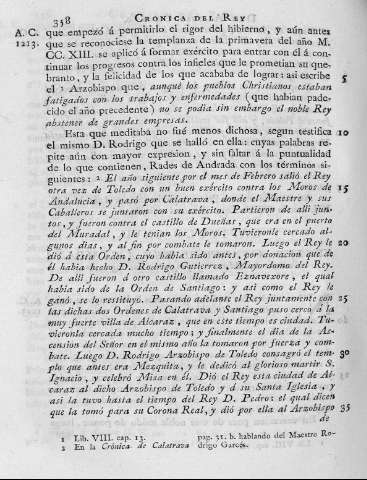 358 CRONICA DEL REY
A. C. que empezó á permitirlo el rigor del hibierno, y aún antes
1213. que se reconociese la templanza de la primavera del año M.
CC. XIII. se aplicó á formar exército para entrar con él á con-
tinuar los progresos contra los infieles que le prometian su que-
branto, y la felicidad de los que acababa de lograr: asi escribe 5
el 1 Arzobispo que, aunque los pueblos Christianos estaban
fatigados con los trabajos y enfermedades (que habian pade-
cido el año precedente) no se podia sin embargo el noble Rey
abstener de grandes empresas.
Esta que meditaba no fué menos dichosa, segun testifica 10
el mismo D. Rodrigo que se halló en ella: cuyas palabras re-
pite aún con mayor expresion, y sin faltar á la puntualidad
de lo que contienen, Rades de Andrada con los términos si-
guientes: 2 El año siguiente por el mes de Febrero salió el Rey
otra vez de Toledo con un buen exército contra los Moros de 15
Andalucia, y pasó por Calatrava, donde el Maestre y sus
Caballeros se juntaron con su exército. Partieron de alli jun-
tos, y fueron contra el castillo de Dueñas, que era en el puerto
del Muradal, y le tenian los Moros. Tuvieronle cercado al-
gunos dias, y al fin por combate le tomaron. Luego el Rey le 20
dió á esta Orden, cuyo habia sido antes, por donacion que de
él habia hecho D. Rodrigo Gutierrez, Mayordomo del Rey.
De alli fueron á otro castillo llamado Eznavexore, el qual
habia sido de la Orden de Santiago: y asi como el Rey le
ganó, se lo restituyó. Pasando adelante el Rey juntamente con 25
las dichas dos Ordenes de Calatrava y Santiago puso cerco á la
muy fuerte villa de Alcaraz, que en este tiempo es ciudad. Tu-
vieronla cercada mucho tiempo; y finalmente el dia de la As-
cension del Señor en el mismo año la tomaron por fuerza y com-
bate. Luego D. Rodrigo Arzobispo de Toledo consagró el tem- 30
plo que antes era Mezquita, y le dedicó al glorioso martir S.
Ignacio, y celebró Misa en él. Dió el Rey esta ciudad de Al-
caraz al dicho Arzobispo de Toledo y á su Santa Iglesia, y
asi la tuvo hasta el tiempo del Rey D. Pedro: el qual dicen
que la tomó para su Corona Real, y dió por ella al Arzobispo 35
de
1 Lib. VIII. cap. 13.
2 En la Crónica de Calatrava
pag. 31. b. hablando del Maestre Ro-
drigo Garcés.